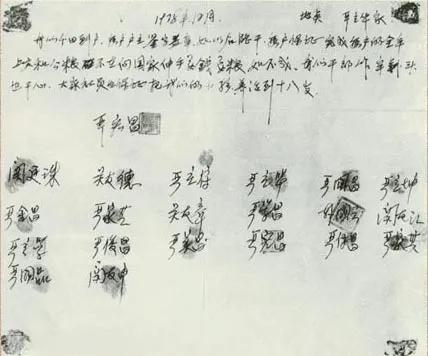 1978年12月 地点 严立华家
我们分田到户,每户户主签字盖章,如以后能干,每户保证完成每户的全年
上交和公粮,不在向国家伸手要钱要粮,如不成,我们干部作牢杀头
也干心,大家社员也保证把我们的小孩养活到十八岁
严宏昌
关廷珠 关友德 严立符 严立华 严国昌 严立坤
严金昌 严家芝 关友章 严学昌 韩国云 关友江
严立学 严俊昌 严美昌 严宏昌 严付昌 严家其
严国品 关友申